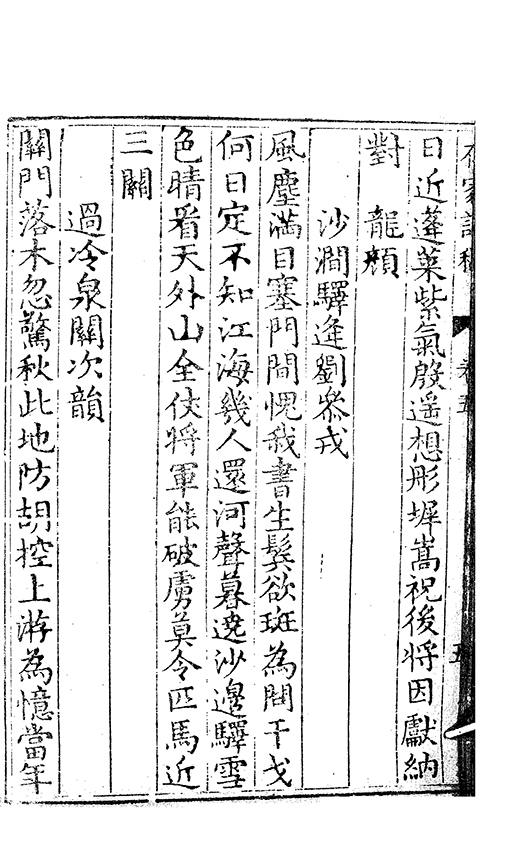 日近蓬萊紫氣殷遥想彤墀嵩祝後將因獻納
對龍顔
沙澗驛逢劉叅戎
風塵滿目塞門間愧我書生鬂欲斑為問干戈
何日定不知江海幾人還河聲暮遶沙邊驛雪
色晴看天外山全伏將軍能破虜莫令匹馬近
三關
過冷泉關次韻
關門落木忽驚秋此地防胡控上游為憶當年